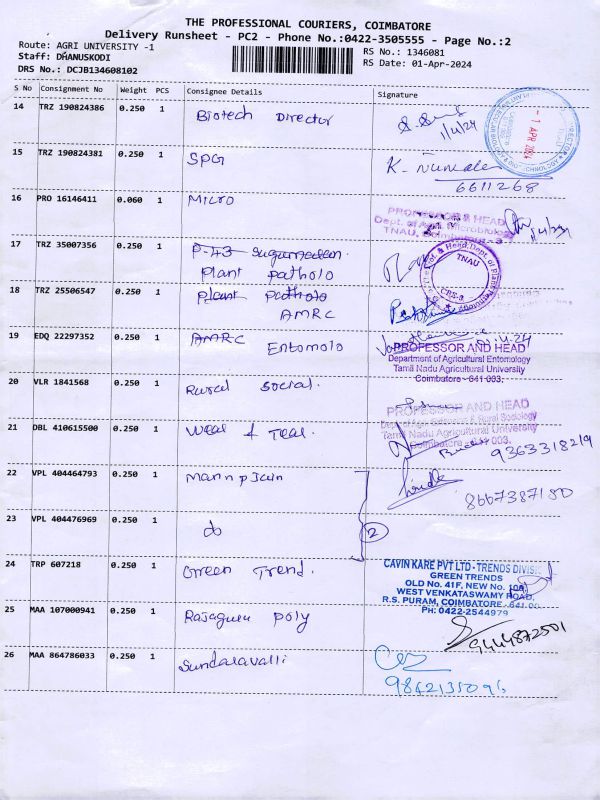 THE PROFESSIONAL COURIERS, COIMBATORE
Delivery Runsheet - PC2 - Phone No.:0422-3505555 - Page No.:2
Route: AGRI UNIVERSITY -1
Staff: DHANUSKODI
DRS No.: DCJB134608102
RS No.: 1346081
RS Date: 01-Apr-2024
S No Consignment No Weight PCS Consignee Details Signature
14 TRZ 190824386 0.250 1 Biotech Director
1/4/24
1 APR 2024
15 TRZ 190824381 0.250 1 SPG
6611268
16 PRO 16146411 0.060 1 Micro
PROFESSOR & HEAD
Dept. of Agrl. Microbiology
TNAU, Coimbatore - 3
17 TRZ 35007356 0.250 1 P-43
Plant patholo
TNAU
18 TRZ 25506547 0.250 1 Plant patholo
AMRC
19 EDQ 22297352 0.250 1 AMRC Entomolo
PROFESSOR AND HEAD
Department of Agricultural Entomology
Tamil Nadu Agricultural University
Coimbatore - 641 003.
20 VLR 1841568 0.250 1 Rural Social.
PROFESSOR AND HEAD
Tamil Nadu Agricultural University
Coimbatore - 641 003.
21 DBL 410615500 0.250 1
9363318219
22 VPL 404464793 0.250 1
8667387180
23 VPL 404476969 0.250 1 do
2
24 TRP 607218 0.250 1 Green Trend.
CAVIN KARE PVT LTD - TRENDS DIVIS
GREEN TRENDS
OLD No. 41F, NEW No.
WEST VENKATASWAMY ROAD,
R.S. PURAM, COIMBATORE - 641 00
PH: 0422-2544979
25 MAA 107000941 0.250 1 Rajaguru poly
9444872501
26 MAA 864786033 0.250 1 Sundaravalli